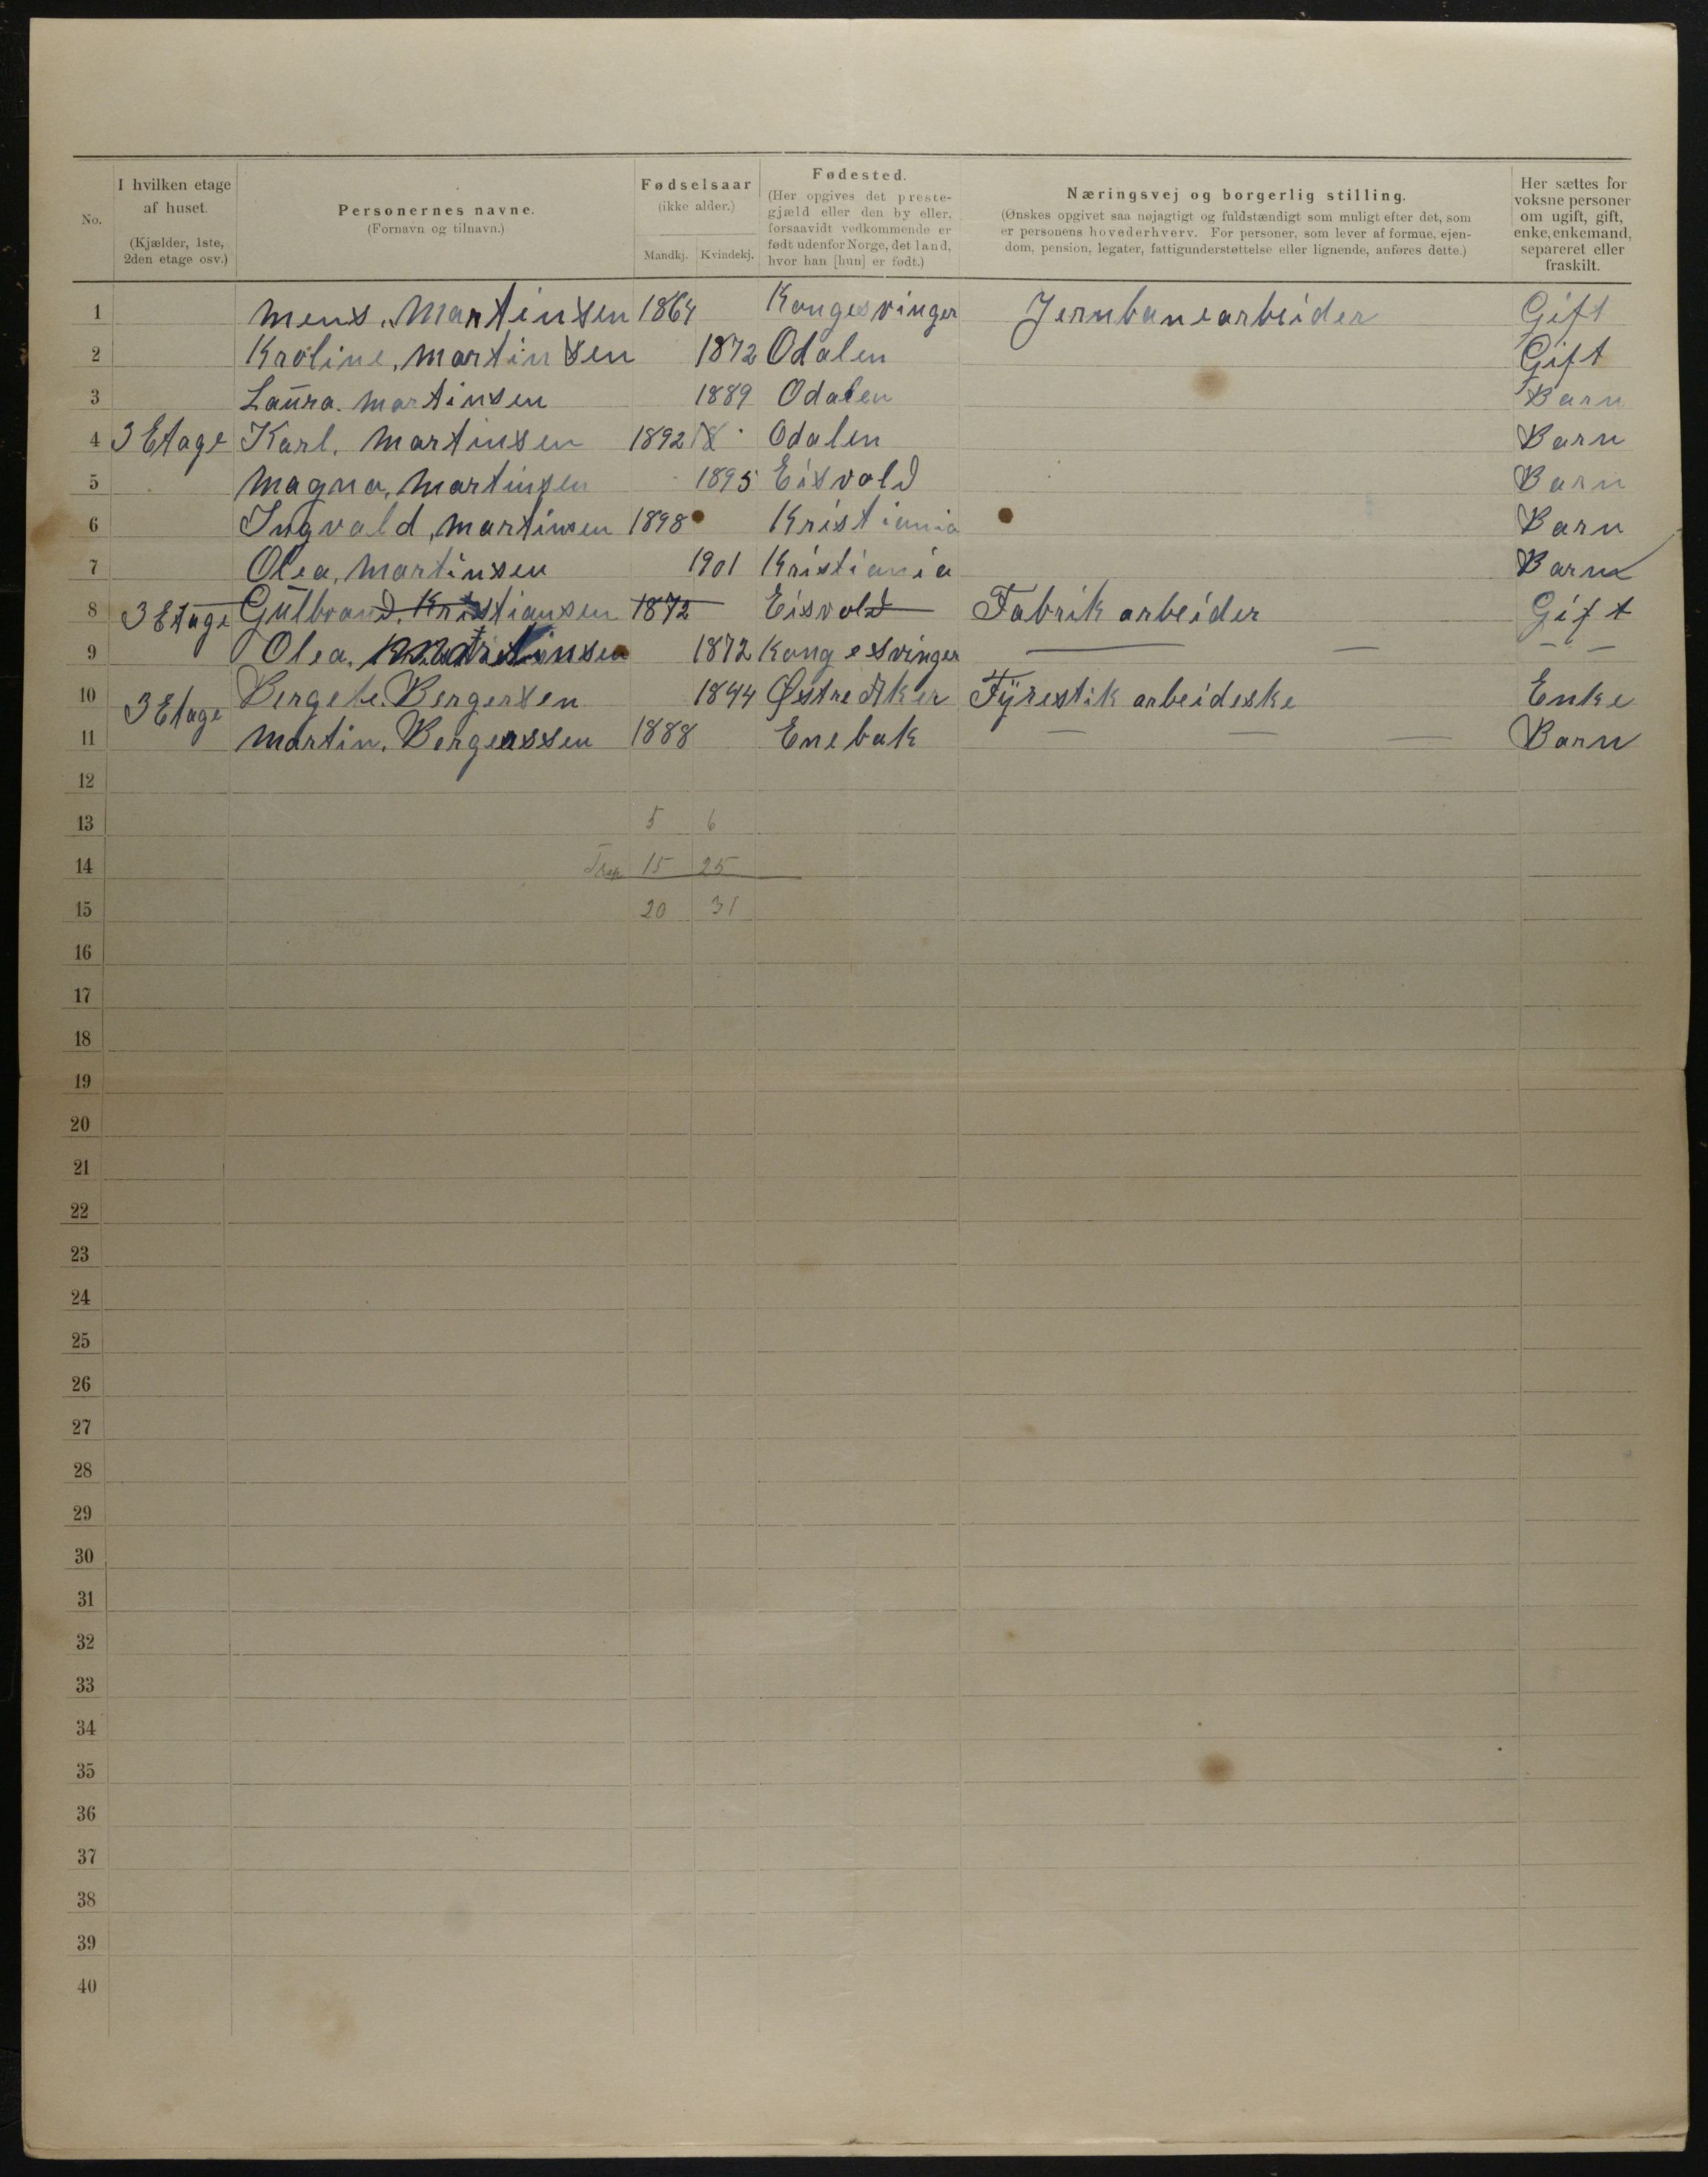 No.
I hvilken etage af huset. (Kjælder, 1ste, 2den etage osv.)
Personernes navne. (Fornavn og tilnavn.)
Fødselsaar (ikke alder.) Mandkj. Kvindekj.
Fødested. (Her opgives det prestegjæld eller den by eller, forsaavidt vedkommende er født udenfor Norge, det land, hvor han [hun] er født.)
Næringsvej og borgerlig stilling. (Ønskes opgivet saa nøjagtigt og fuldstændigt som muligt efter det, som er personens hovederhverv. For personer, som lever af formue, ejendom, pension, legater, fattigunderstøttelse eller lignende, anføres dette.)
Her sættes for voksne personer om ugift, gift, enke, enkemand, separeret eller fraskilt.
1 Mens. Martinsen 1864 Kongesvinger Jernbanearbeider Gift
2 Kroline, Martinsen 1872 Odalen Gift
3 Laura. Martinsen 1889 Odalen Barn
4 3 Etage Karl. Martinsen 1892 Odalen Barn
5 Magna, Martinsen 1895 Eisvold Barn
6 Ingvald, Martinsen 1898 Kristiania Barn
7 Olea, Martinsen 1901 Kristiania Barn
8 3 Etage Gulbrand. Kristiansen 1872 Eisvold Fabrik arbeider Gift
9 Olea. 1872 Kongesvinger — — — —
10 3 Etage Bergete. Bergersen 1844 Østre Aker Fyrestik arbeideske Enke
11 Martin. Bergerssen 1888 Enebak — — — Barn
12
13 5 6
14 15 25
15 20 31
16
17
18
19
20
21
22
23
24
25
26
27
28
29
30
31
32
33
34
35
36
37
38
39
40